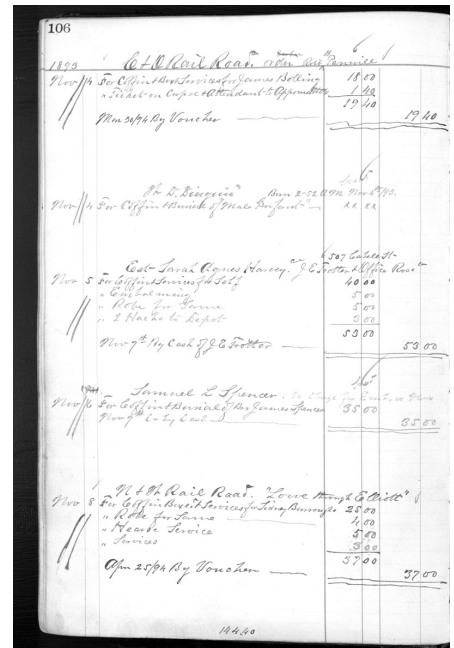 106
1893 C & O Rail Road. order Pennick 6
Nov 4 For Coffin & Box & Services for James Bolling 18 00
" Ticket on Corpse & Attendant to Appomattox 1 40
19 40
Mar 20/94 By Voucher 19 40
W. D. Born 2-52 A.M. Nov 6th/93.
Nov 4 For Coffin & Burial of Male Infant"
507 Cabell St
Est Sarah Agnes Harvey. J E Trotter Office Rose"
Nov 5 For Coffin & Services for Self 40 00
" Embalming 5 00
" Robe for Same 5 00
" 2 Hacks to Depot 3 00
53 00
Nov 7th By Cash of J E Trotter 53 00
Samuel L Spencer.
Nov 6 For Coffin & Burial of Bro James Spencer 35 00
Nov 9th Cr by Cash 35 00
N & W Rail Road. "Lowe through Elliott"
Nov 8 For Coffin Box & Services for Sidney Burroughs 25 00
" Robe for Same 4 00
" Hearse Service 5 00
" Services 3 00
37 00
Apr 25/94 By Voucher 37 00
144.40